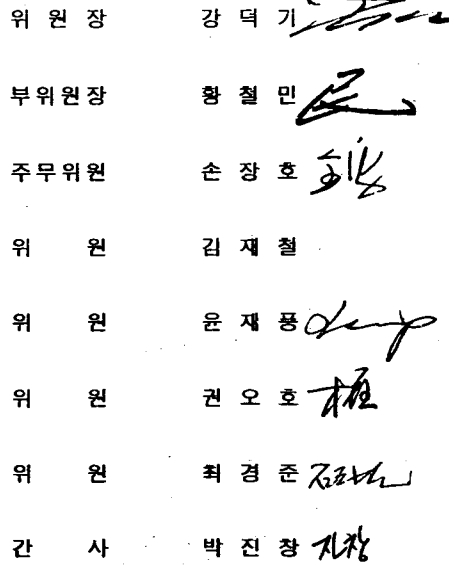 위 원 장 강 덕 기
부위원장 황 철 민 民
주무위원 손 장 호
위 원 김 재 철
위 원 윤 재 풍
권 오 호 위 원 權
위 원 최 경 준
간 사 박 진 창 진창